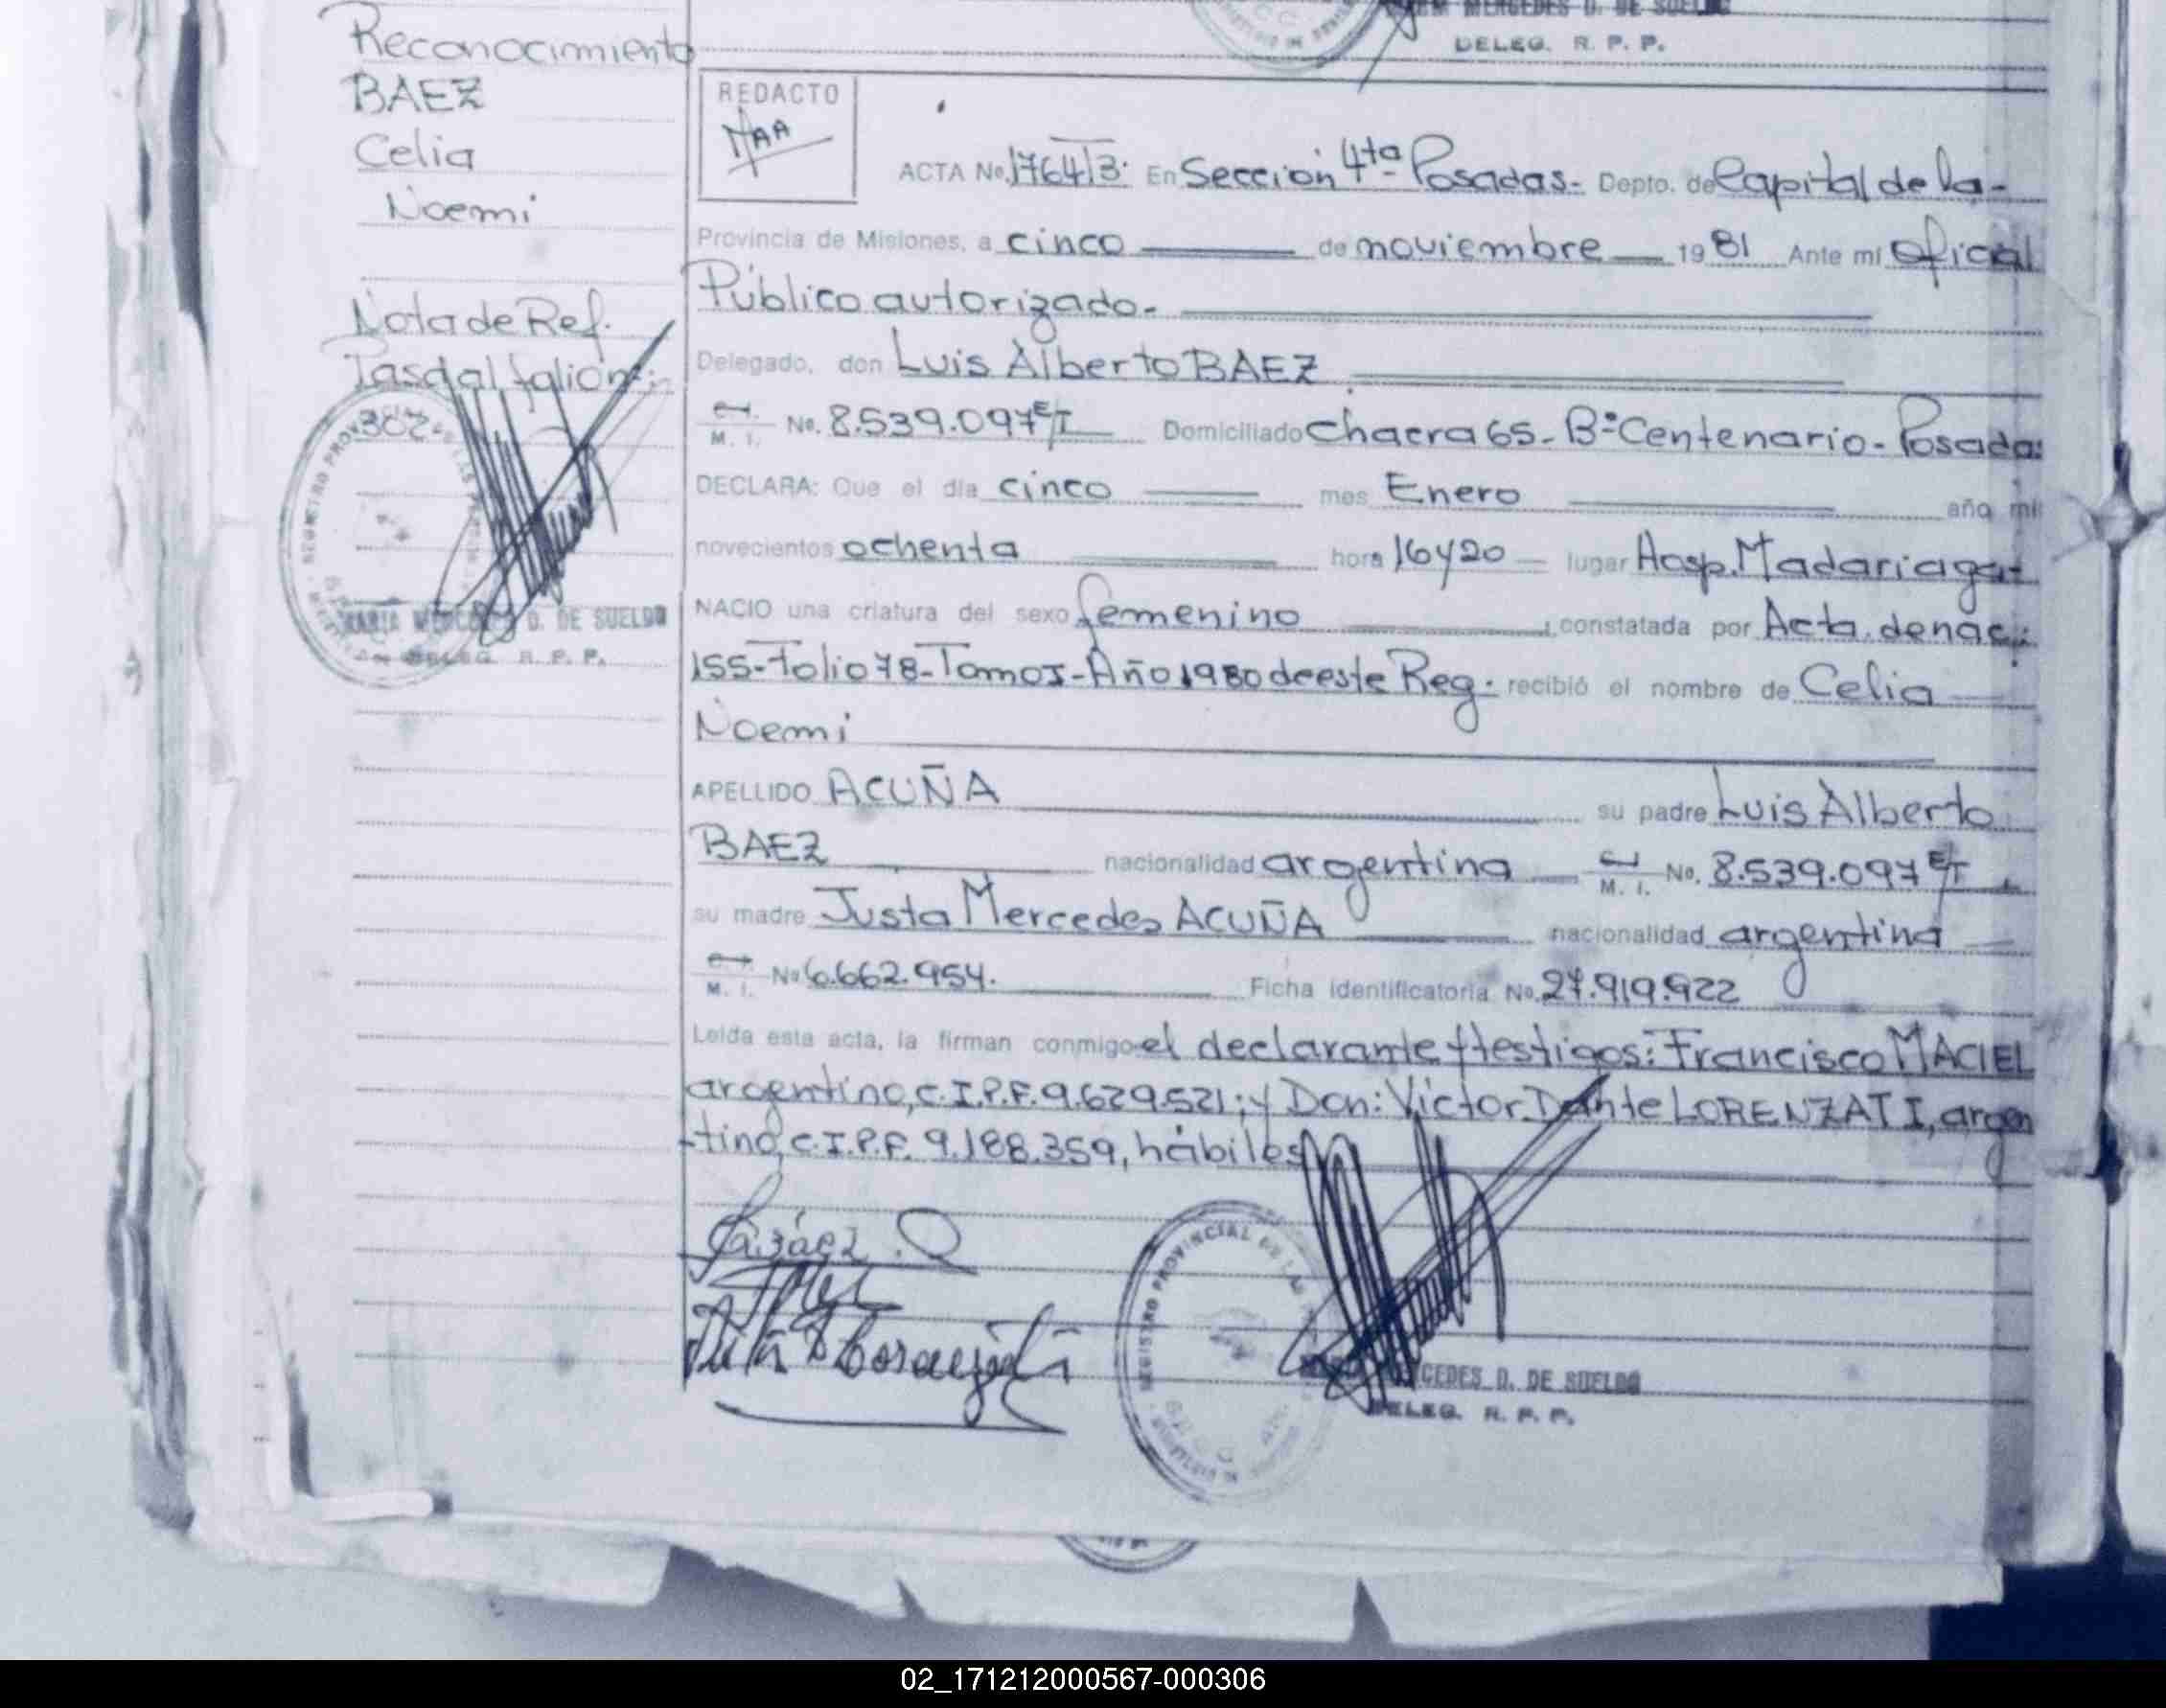 MERCEDES D. DE SUELDO
DELEG. R. P. P.
Reconocimiento
BAEZ
Celia
Noemi
Nota de Ref.
Pasa al folio n°:
302-
MARIA MERCEDES D. DE SUELDO
DELEG. R. P. P.
REDACTO
ACTA No. 1764 T3. En Sección 4ta- Posadas.- Depto. de Capital de la-
Provincia de Misiones, a cinco de noviembre 1981 Ante mí Oficial
Público autorizado.-
Delegado, don Luis Alberto BAEZ
M. I. No. 8.539.097 E/T Domiciliado Chacra 65- B° Centenario- Posadas
DECLARA: Que el día cinco mes Enero año mil
novecientos ochenta hora 16 y 20 lugar Hosp. Madariaga-
NACIO una criatura del sexo femenino, constatada por Acta. de nac.:
155-Folio 78-Tomo I-Año 1980 de este Reg. recibió el nombre de Celia
Noemi
APELLIDO ACUÑA su padre Luis Alberto
BAEZ nacionalidad argentina M. I. No. 8.539.097 E/T
su madre Justa Mercedes ACUÑA nacionalidad argentina
M. I. No 6.662.954. Ficha identificatoria No. 27.919.922
Leída esta acta, la firman conmigo el declarante y testigos: Francisco MACIEL
argentino, C.I.P.F. 9.629.521; y Don: Victor Dante LORENZATI, argen
tino, C.I.P.F. 9.188.359, hábiles
REGISTRO PROVINCIAL DE LAS
MERCEDES D. DE SUELDO
DELEG. R. P. P.
02_171212000567-000306